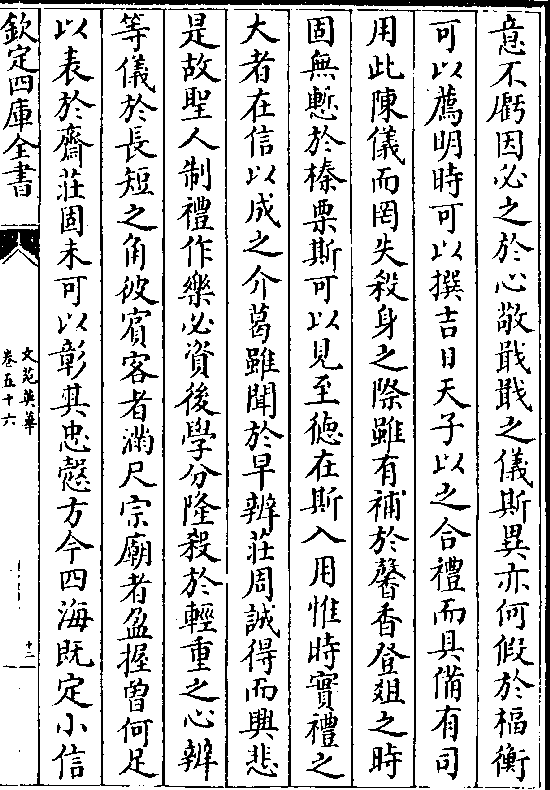 意不虧因必之於心敬戢戢之儀斯異亦何假於楅衡
可以薦明時可以撰吉日天子以之合禮而具備有司
用此陳儀而罔失殺身之際雖有補於馨香登爼之時
固無慙於榛栗斯可以見至徳在斯入用惟時實禮之
大者在信以成之介葛雖聞於早辨莊周誠得而興悲
是故聖人制禮作樂必資後學分隆殺於輕重之心辨
等儀於長短之角彼賓客者滿尺宗廟者盈握曽何足
以表於齋莊固未可以彰其忠慤方今四海既定小信
欽定四庫全書
文苑英華
卷五十六
十二